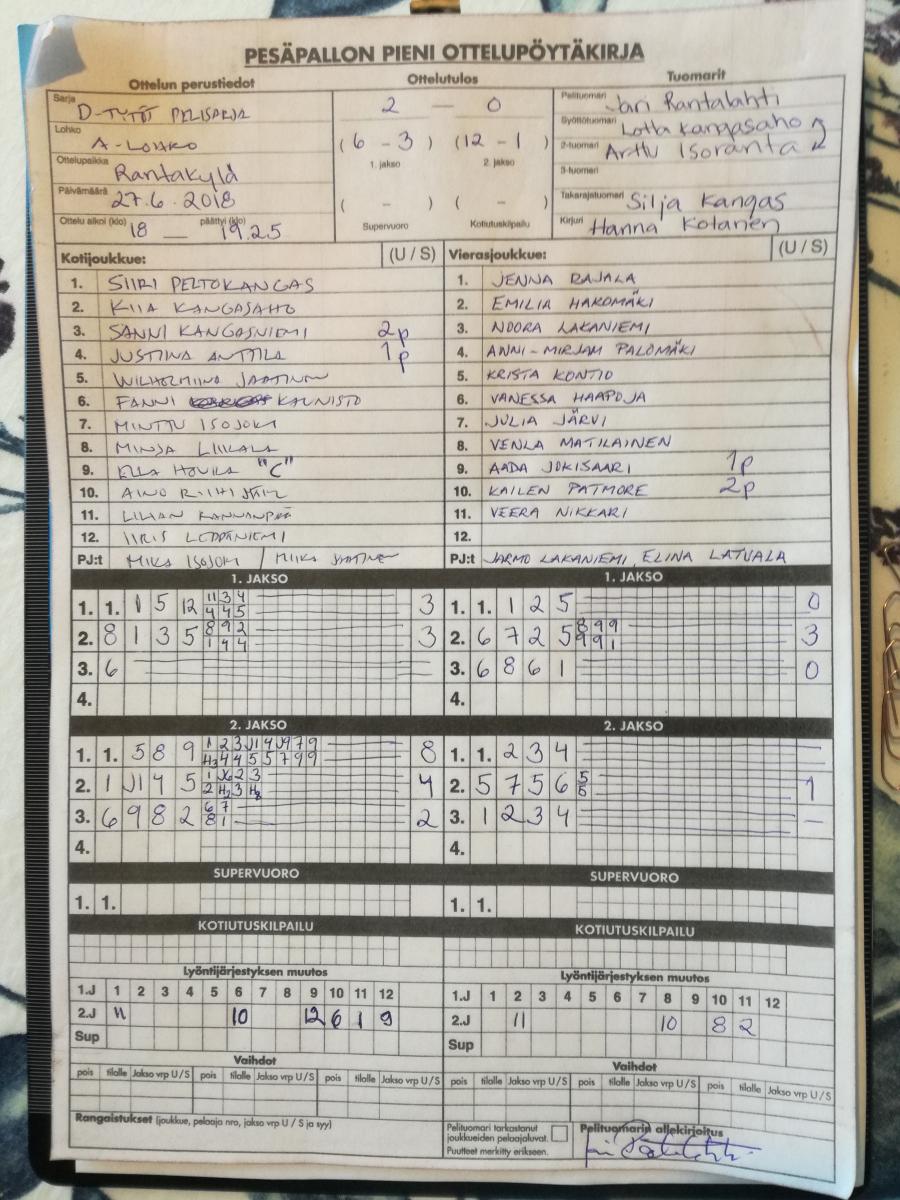 PESÄPALLON PIENI OTTELUPÖYTÄKIRJA
Ottelun perustiedot Ottelutulos Tuomarit
Sarja D-TYTÖT PELISARJA
Lohko A-LOHKO
Ottelupaikka Rantakylä
Päivämäärä 27.6.2018
Ottelu alkoi (klo) 18 — päättyi (klo) 19.25
2 — 0
(6 - 3) (12 - 1)
1. jakso 2. jakso
( - ) ( - )
Supervuoro Kotiutuskilpailu
Pelituomari Jari Rantalahti
Syöttötuomari Lotta Kangasaho
2-tuomari Arttu Isoranta
3-tuomari
Takarajatuomari Silja Kangas
Kirjuri Hanna Kotanen
Kotijoukkue: (U / S)
1. SIIRI PELTOKANGAS
2. KIIA KANGASAHO
3. SANNI KANGASNIEMI 2p
4. JUSTIINA ANTTILA 1p
5. WILHELMIINA JAATINEN
6. FANNI KAUNISTO
7. MINTTU ISOJOKI
8. MINJA LIIKALA
9. ELLA HOVILA "C"
10. AINO
11. LILIAN KANNANPÄÄ
12. IIRIS LEPPÄNIEMI
PJ:t MIKA ISOJOKI / MIIKA JAATINEN
Vierasjoukkue: (U / S)
1. JENNA RAJALA
2. EMILIA HAKOMÄKI
3. NOORA LAKANIEMI
4. ANNI-MIRJAM PALOMÄKI
5. KRISTA KONTIO
6. VANESSA HAAPOJA
7. JULIA JÄRVI
8. VENLA MATILAINEN
9. AADA JOKISAARI 1p
10. KAILEN PATMORE 2p
11. VEERA NIKKARI
12.
PJ:t JARMO LAKANIEMI, ELINA LATVALA
1. JAKSO
1. 1. 1 5 12 11 3 4 3
4 4 5
2. 8 1 3 5 8 9 2 3
1 4 4
3. 6
4.
1. JAKSO
1. 1. 1 2 5 0
2. 6 7 2 5 8 9 9 3
9 9 1
3. 6 8 6 1 0
4.
2. JAKSO
1. 1. 5 8 9 8
2. 1 J1 4 5 4
3. 6 9 8 2 6 7 2
8 1
4.
2. JAKSO
1. 1. 2 3 4 —
2. 5 7 5 6 5 1
3. 1 2 3 4 —
4.
SUPERVUORO SUPERVUORO
1. 1. 1. 1.
KOTIUTUSKILPAILU KOTIUTUSKILPAILU
Lyöntijärjestyksen muutos
1.J 1 2 3 4 5 6 7 8 9 10 11 12
2.J 11 10 12 6 1 9
Sup
Lyöntijärjestyksen muutos
1.J 1 2 3 4 5 6 7 8 9 10 11 12
2.J 11 10 8 2
Sup
Vaihdot Vaihdot
pois tilalle Jakso vrp U / S pois tilalle Jakso vrp U / S pois tilalle Jakso vrp U / S
pois tilalle Jakso vrp U / S pois tilalle Jakso vrp U / S pois tilalle Jakso vrp U / S
Rangaistukset (joukkue, pelaaja nro, jakso vrp U / S ja syy)
Pelituomari tarkastanut
joukkueiden pelaajaluvat.
Puutteet merkitty erikseen.
Pelituomarin allekirjoitus